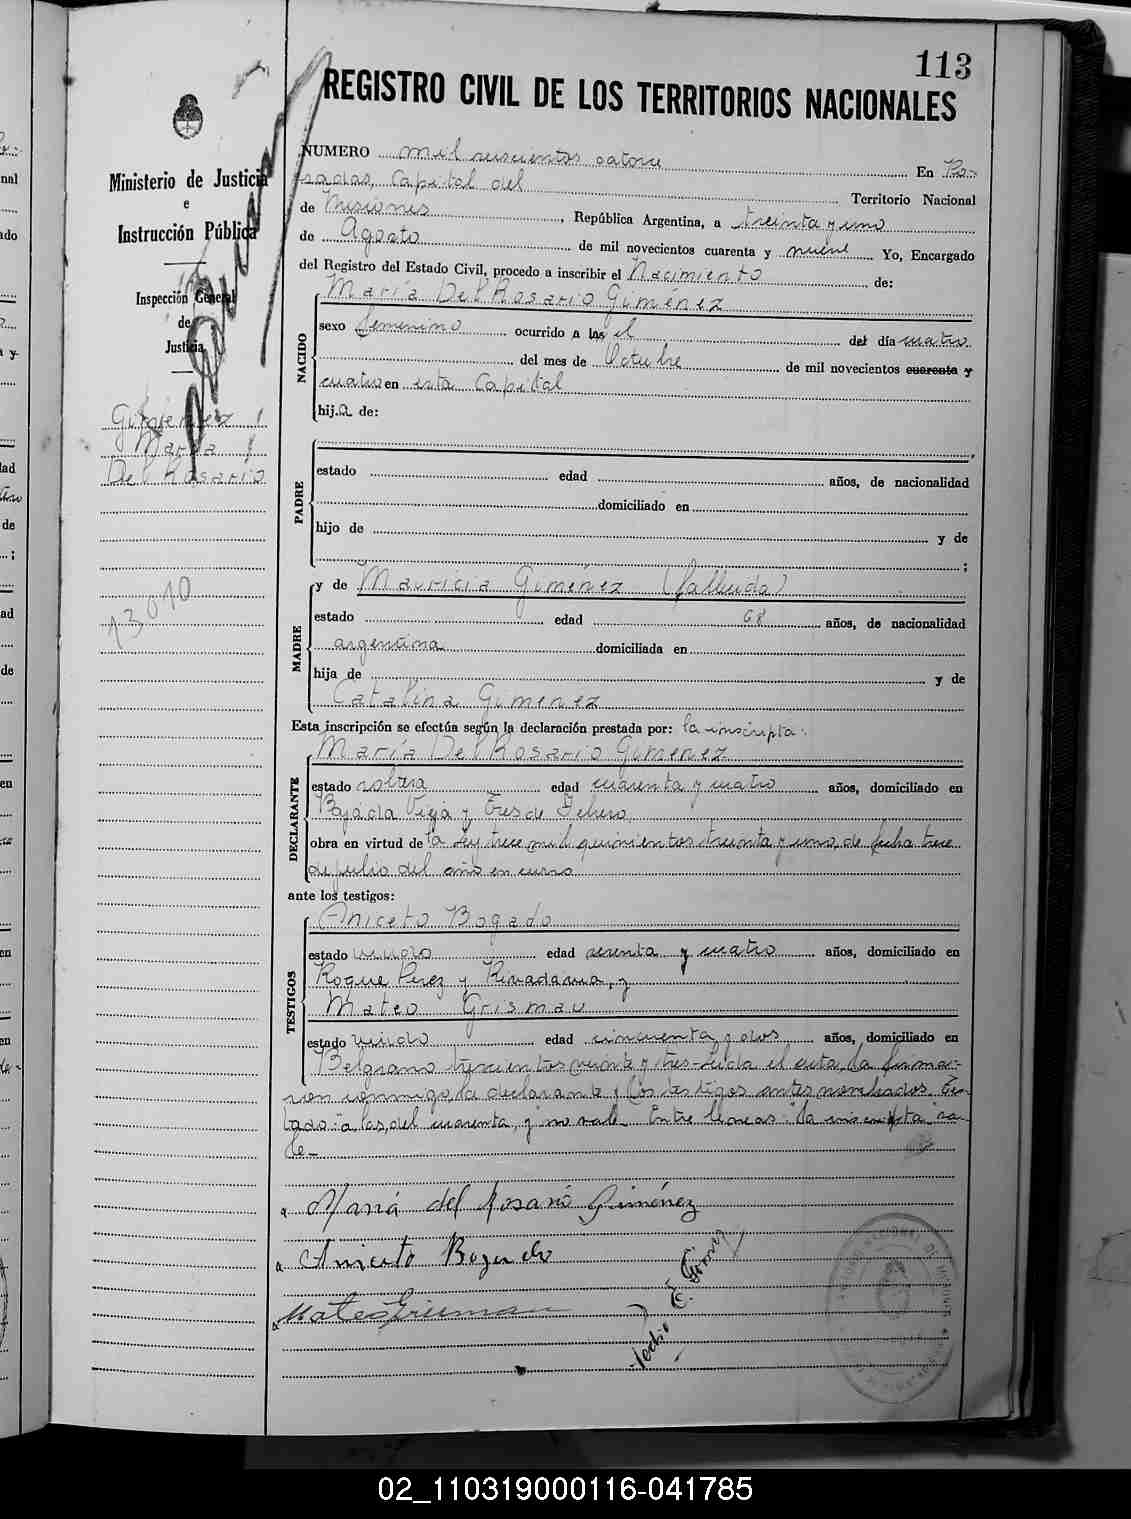 113
REGISTRO CIVIL DE LOS TERRITORIOS NACIONALES
Ministerio de Justicia
e
Instrucción Pública
Inspección General
de
Justicia
Gimenez
María
Del Rosario
13010
NUMERO mil seiscientos catorce En Po-
sadas, Capital del Territorio Nacional
de Misiones, República Argentina, a treinta y uno
de Agosto de mil novecientos cuarenta y nueve Yo, Encargado
del Registro del Estado Civil, procedo a inscribir el Nacimiento de:
María Del Rosario Giménez
NACIDO
sexo femenino ocurrido a las el del día cuatro
del mes de Octubre de mil novecientos cuarenta y
cuatro en esta Capital
hij.a de:
PADRE
estado edad años, de nacionalidad
domiciliado en
hijo de y de
;
MADRE
y de Mauricia Gimenez (fallecida)
estado edad 68 años, de nacionalidad
argentina domiciliada en
hija de y de
Catalina Gimenez
Esta inscripción se efectúa según la declaración prestada por: la inscripta.
DECLARANTE
María Del Rosario Gimenez
estado soltera edad cuarenta y cuatro años, domiciliado en
Bajada Vieja y Tres de Febrero
obra en virtud de la Ley trece mil quinientos treinta y uno, de fecha trece
de julio del año en curso
ante los testigos:
TESTIGOS
Aniceto Bogado
estado viudo edad sesenta y cuatro años, domiciliado en
Roque Perez y Rivadavia, y
Mateo Grismau
estado viudo edad cincuenta y dos años, domiciliado en
Belgrano trescientos veinte y tres-Leída el acta, la firma-
ron conmigo, la declarante y los testigos antes nombrados. Tes-
tado: "a las, del cuarenta, y" no vale. Entre lineas: "la inscripta" va-
le-
María del Rosario Giménez
Aniceto Bogado
Mateo Grisman
E. Gómez
02_110319000116-041785